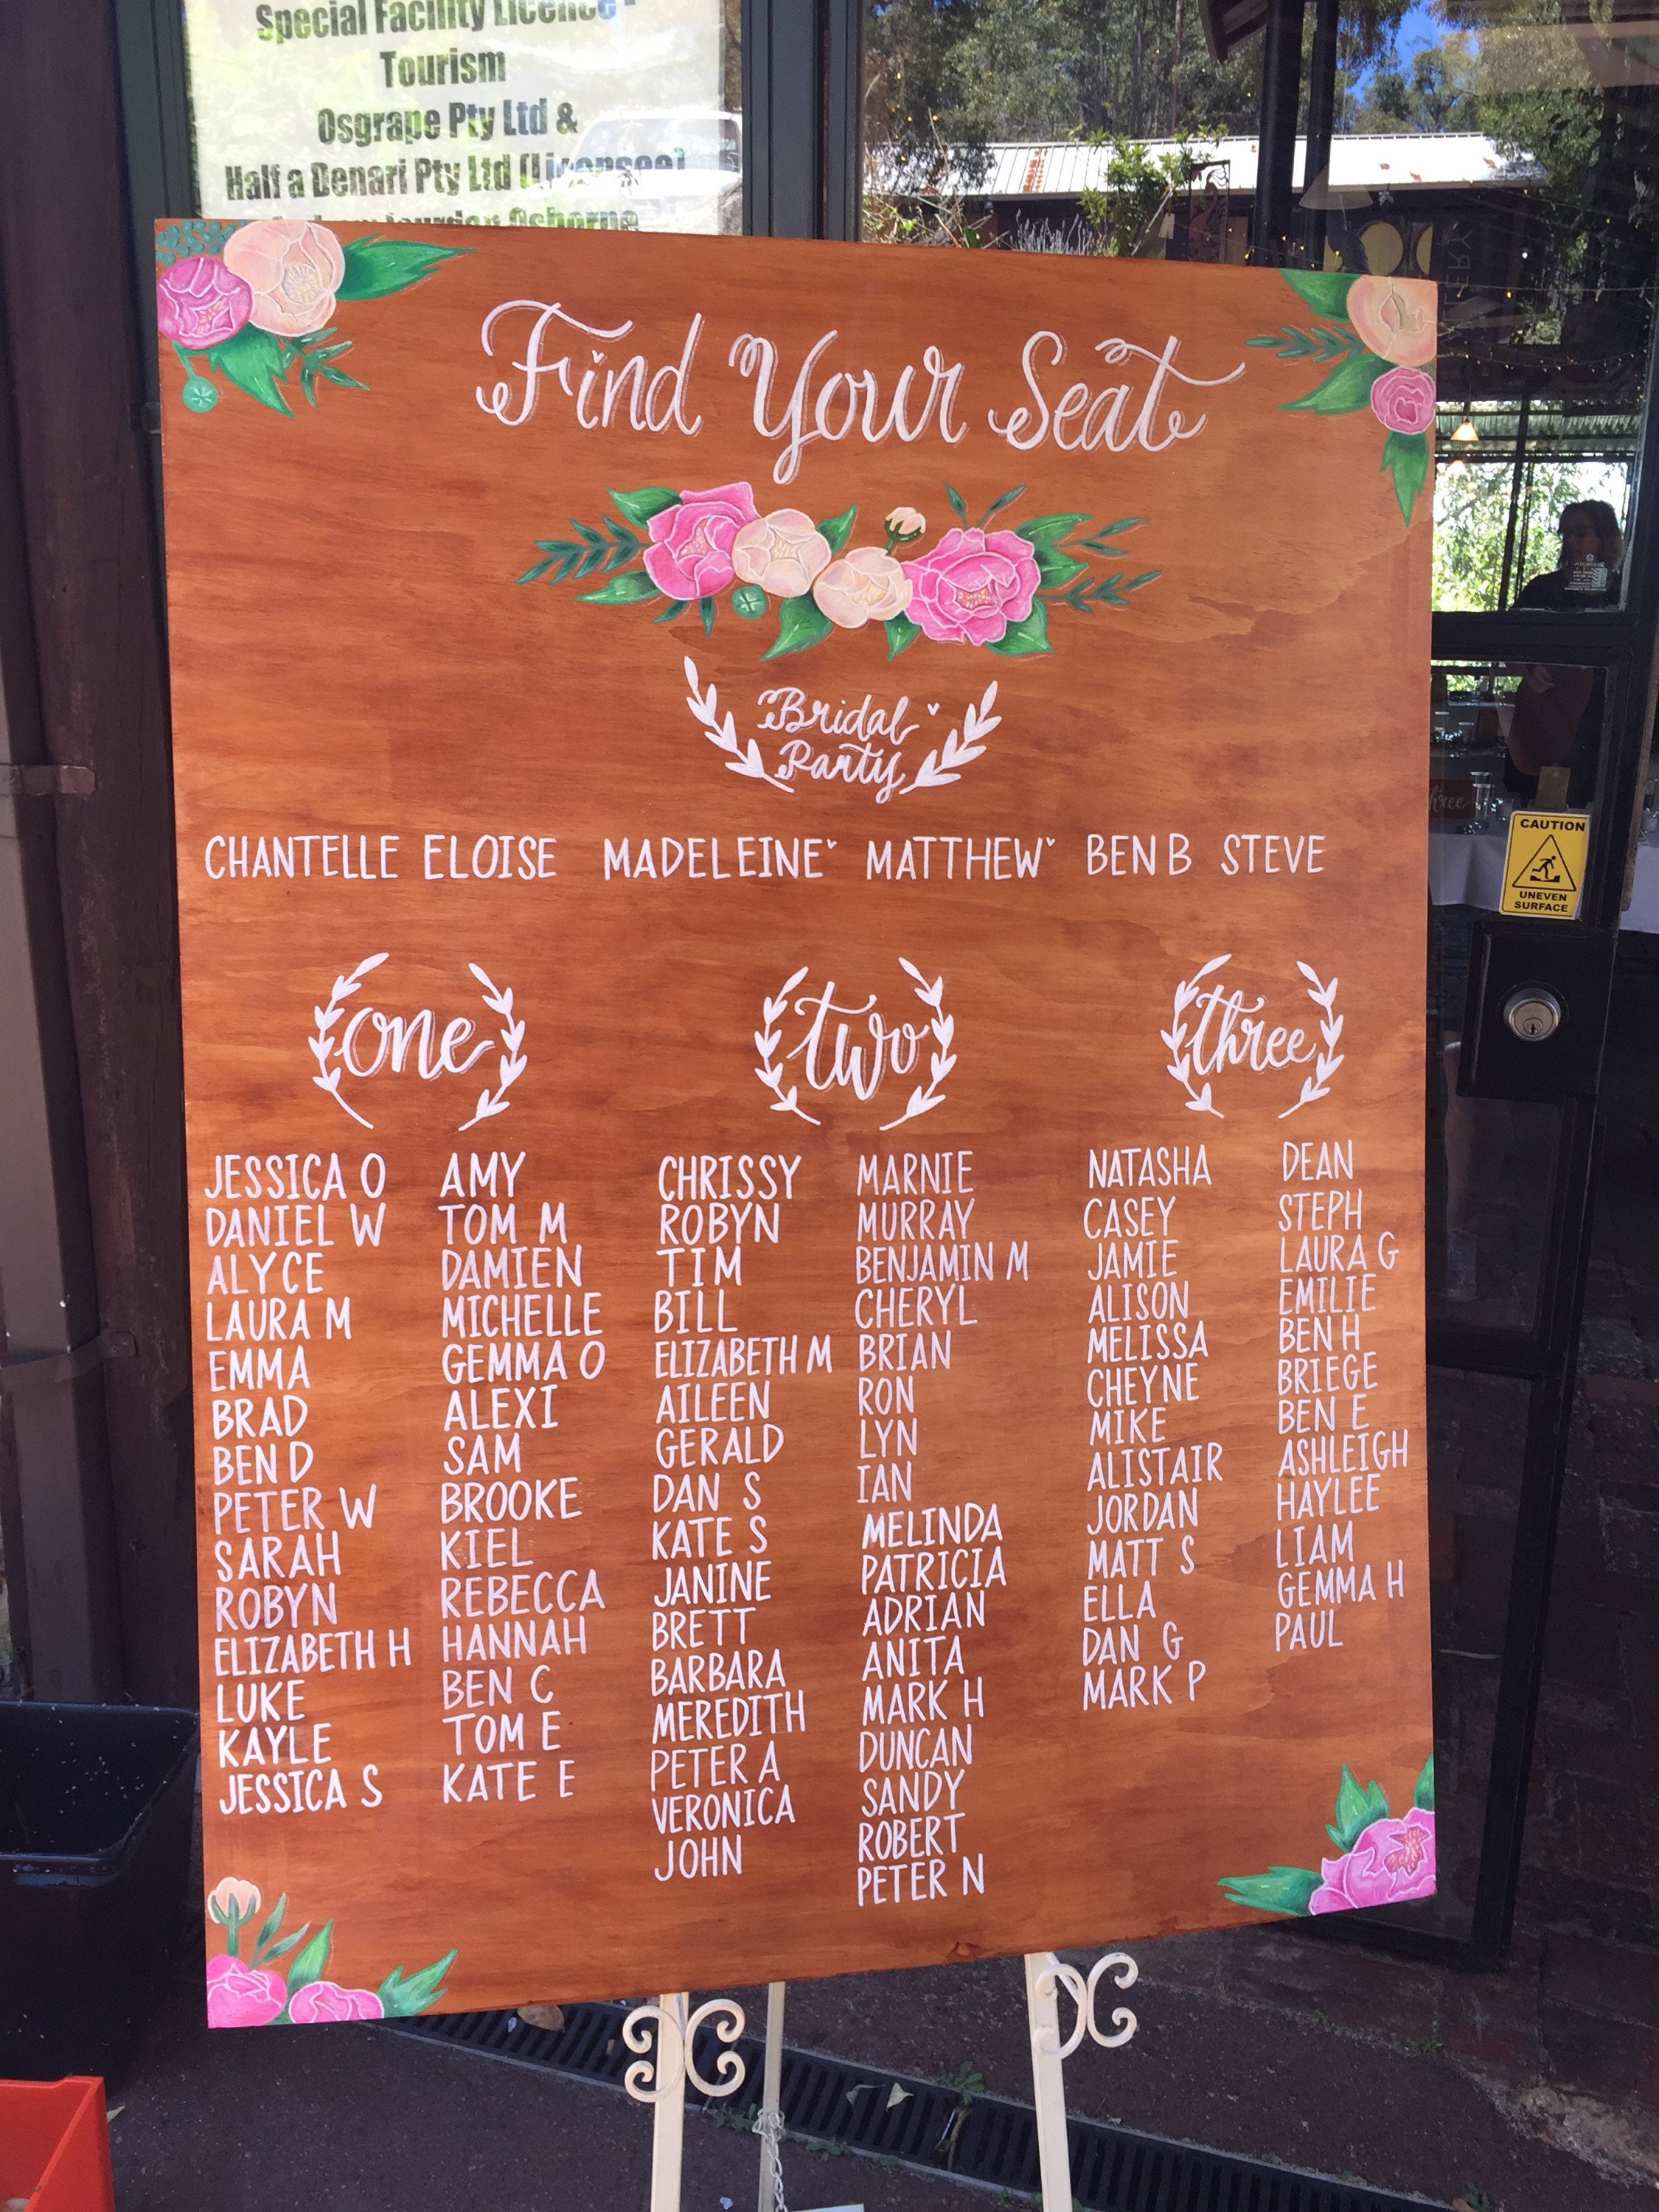 Special Facility Licence -
Tourism
Osgrape Pty Ltd &
Half a Denari Pty Ltd (Licensee)
Osborne
Find Your Seat
Bridal
Party
CHANTELLE ELOISE MADELEINE MATTHEW BEN B STEVE
one
JESSICA O
DANIEL W
ALYCE
LAURA M
EMMA
BRAD
BEN D
PETER W
SARAH
ROBYN
ELIZABETH H
LUKE
KAYLE
JESSICA S
AMY
TOM M
DAMIEN
MICHELLE
GEMMA O
ALEXI
SAM
BROOKE
KIEL
REBECCA
HANNAH
BEN C
TOM E
KATE E
two
CHRISSY
ROBYN
TIM
BILL
ELIZABETH M
AILEEN
GERALD
DAN S
KATE S
JANINE
BRETT
BARBARA
MEREDITH
PETER A
VERONICA
JOHN
MARNIE
MURRAY
BENJAMIN M
CHERYL
BRIAN
RON
LYN
IAN
MELINDA
PATRICIA
ADRIAN
ANITA
MARK H
DUNCAN
SANDY
ROBERT
PETER N
three
NATASHA
CASEY
JAMIE
ALISON
MELISSA
CHEYNE
MIKE
ALISTAIR
JORDAN
MATT S
ELLA
DAN G
MARK P
DEAN
STEPH
LAURA G
EMILIE
BEN H
BRIEGE
BEN E
ASHLEIGH
HAYLEE
LIAM
GEMMA H
PAUL
three
CAUTION
UNEVEN
SURFACE